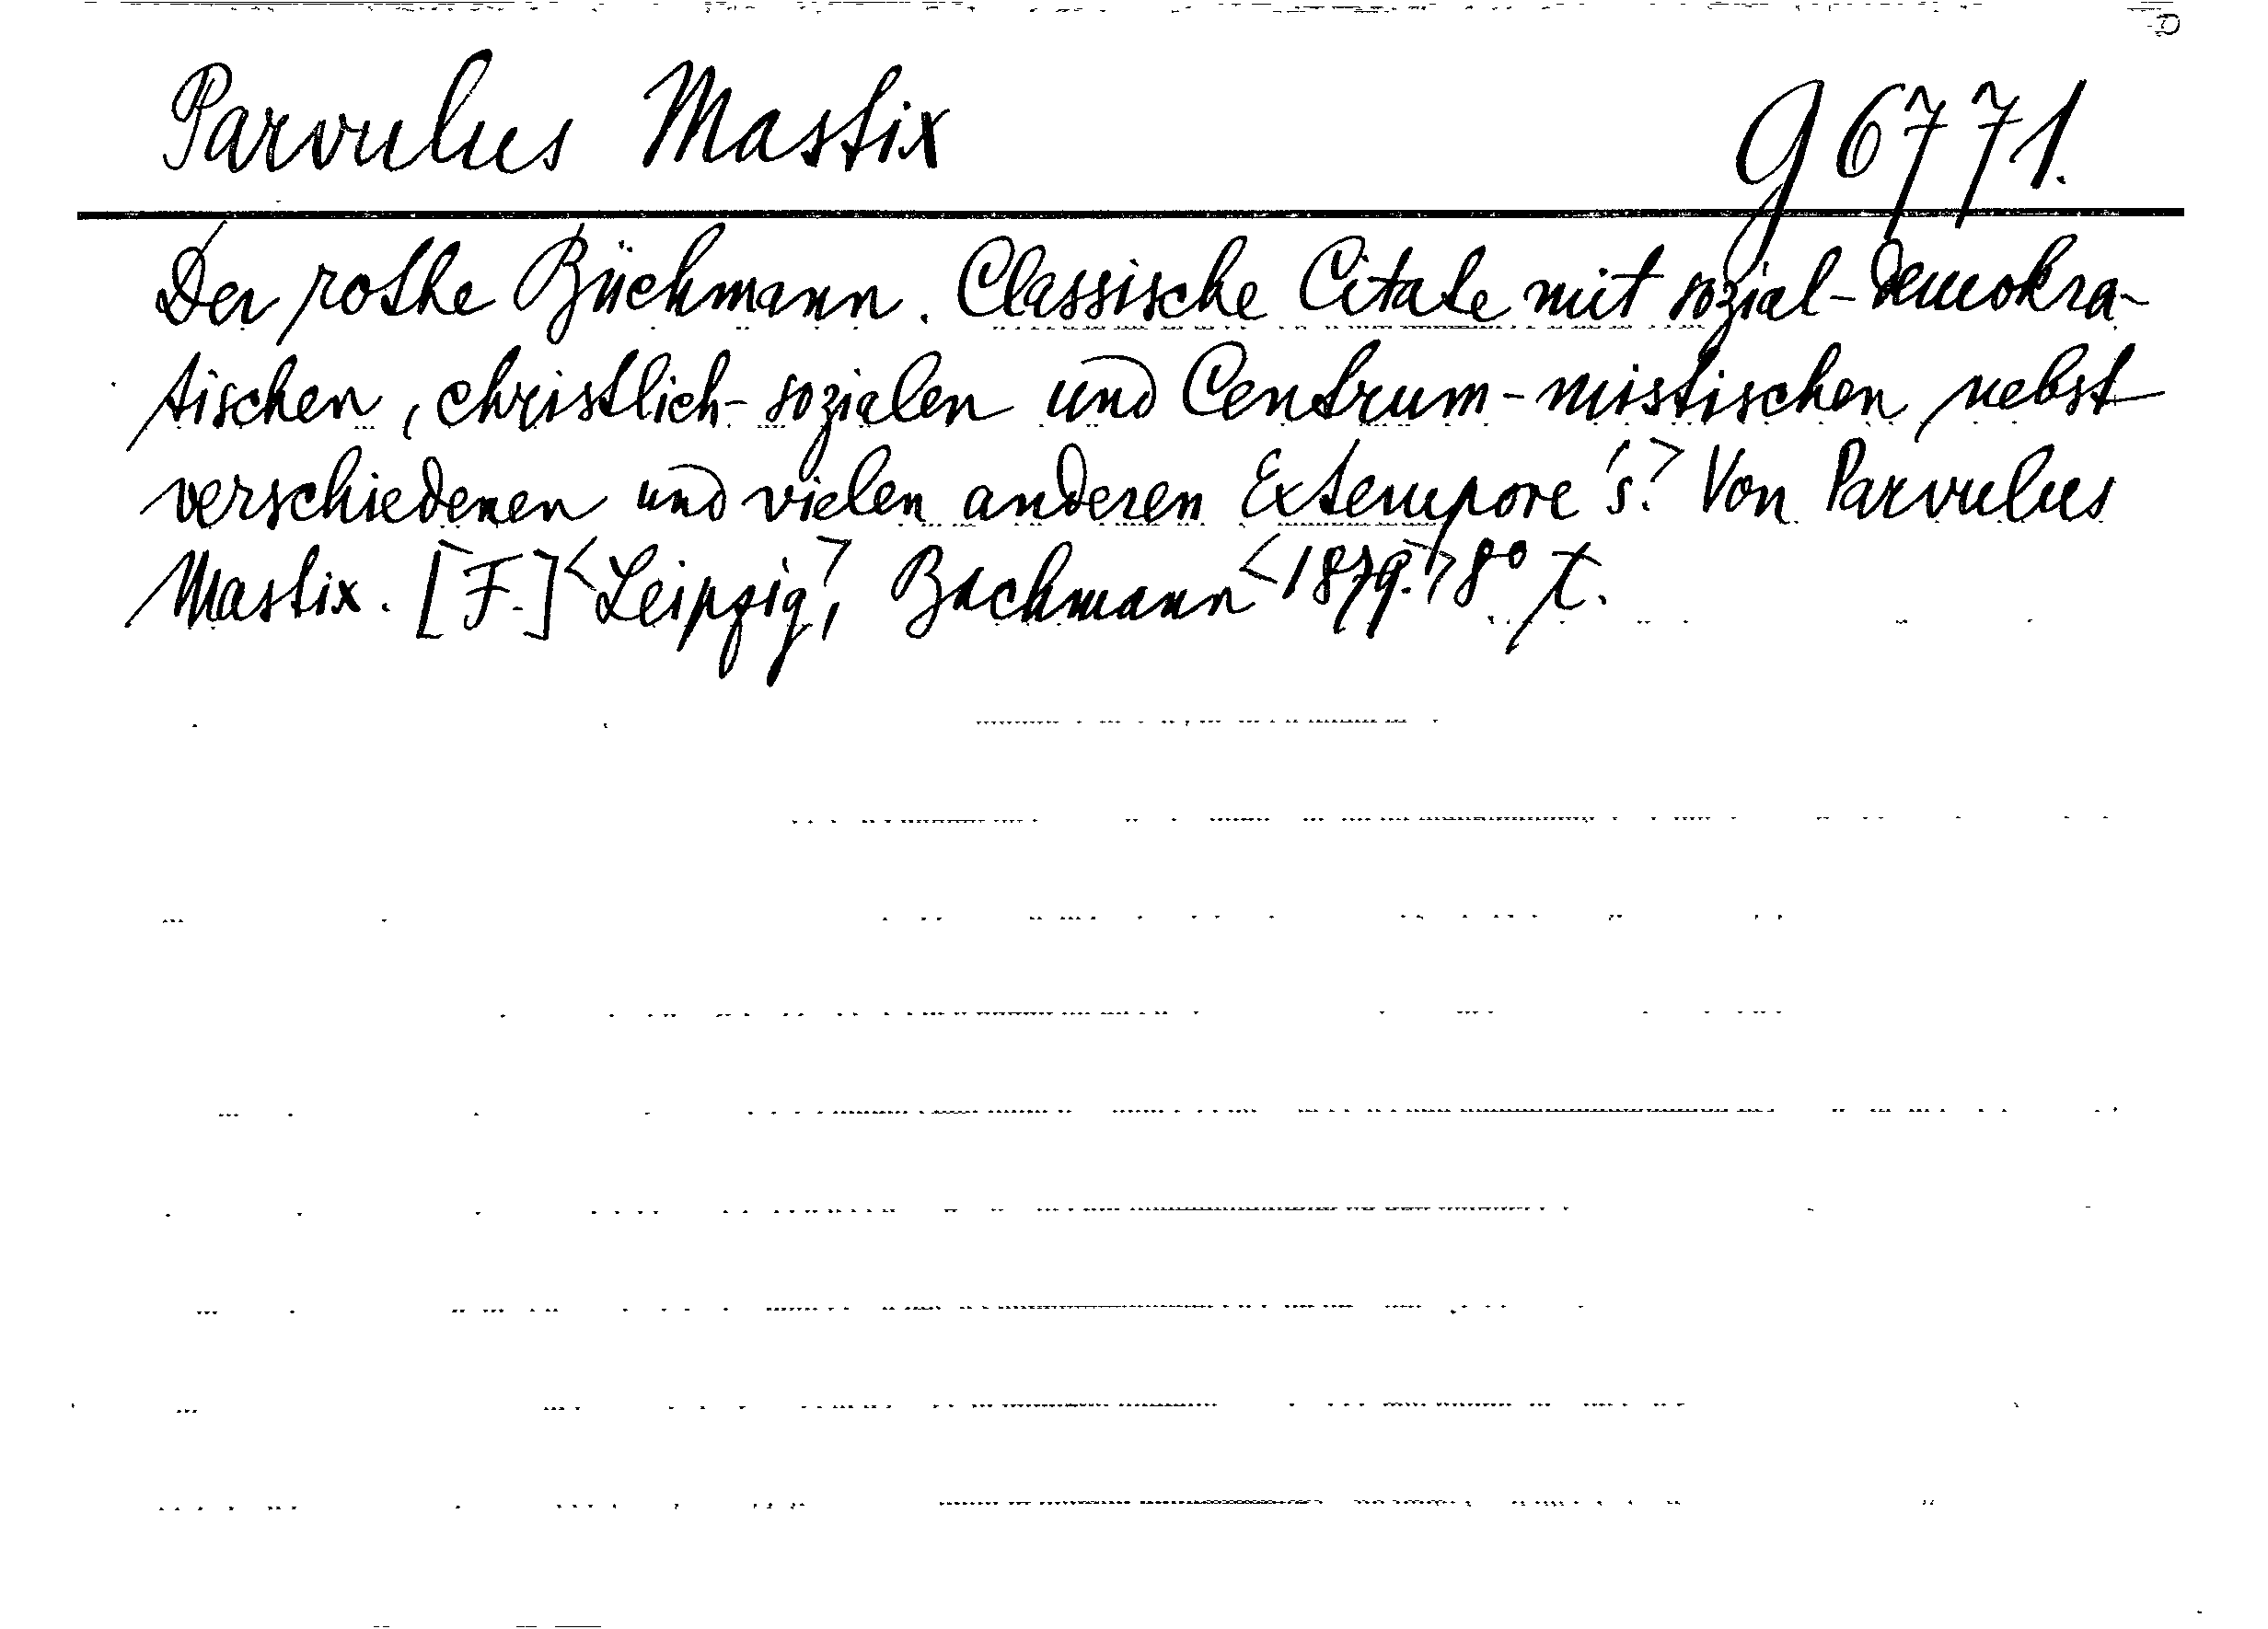 Parvulus Mastix G 6771.
Der rothe Büchmann. Classische Citate mit sozial-demokra-
tischen, christlich-sozialen und Centrum-mistischen, nebst
verschiedenen und vielen anderen Extempore <'s.> Von Parvulus
Mastix. [F.] <Leipzig>, Bachmann <1879.> 8°